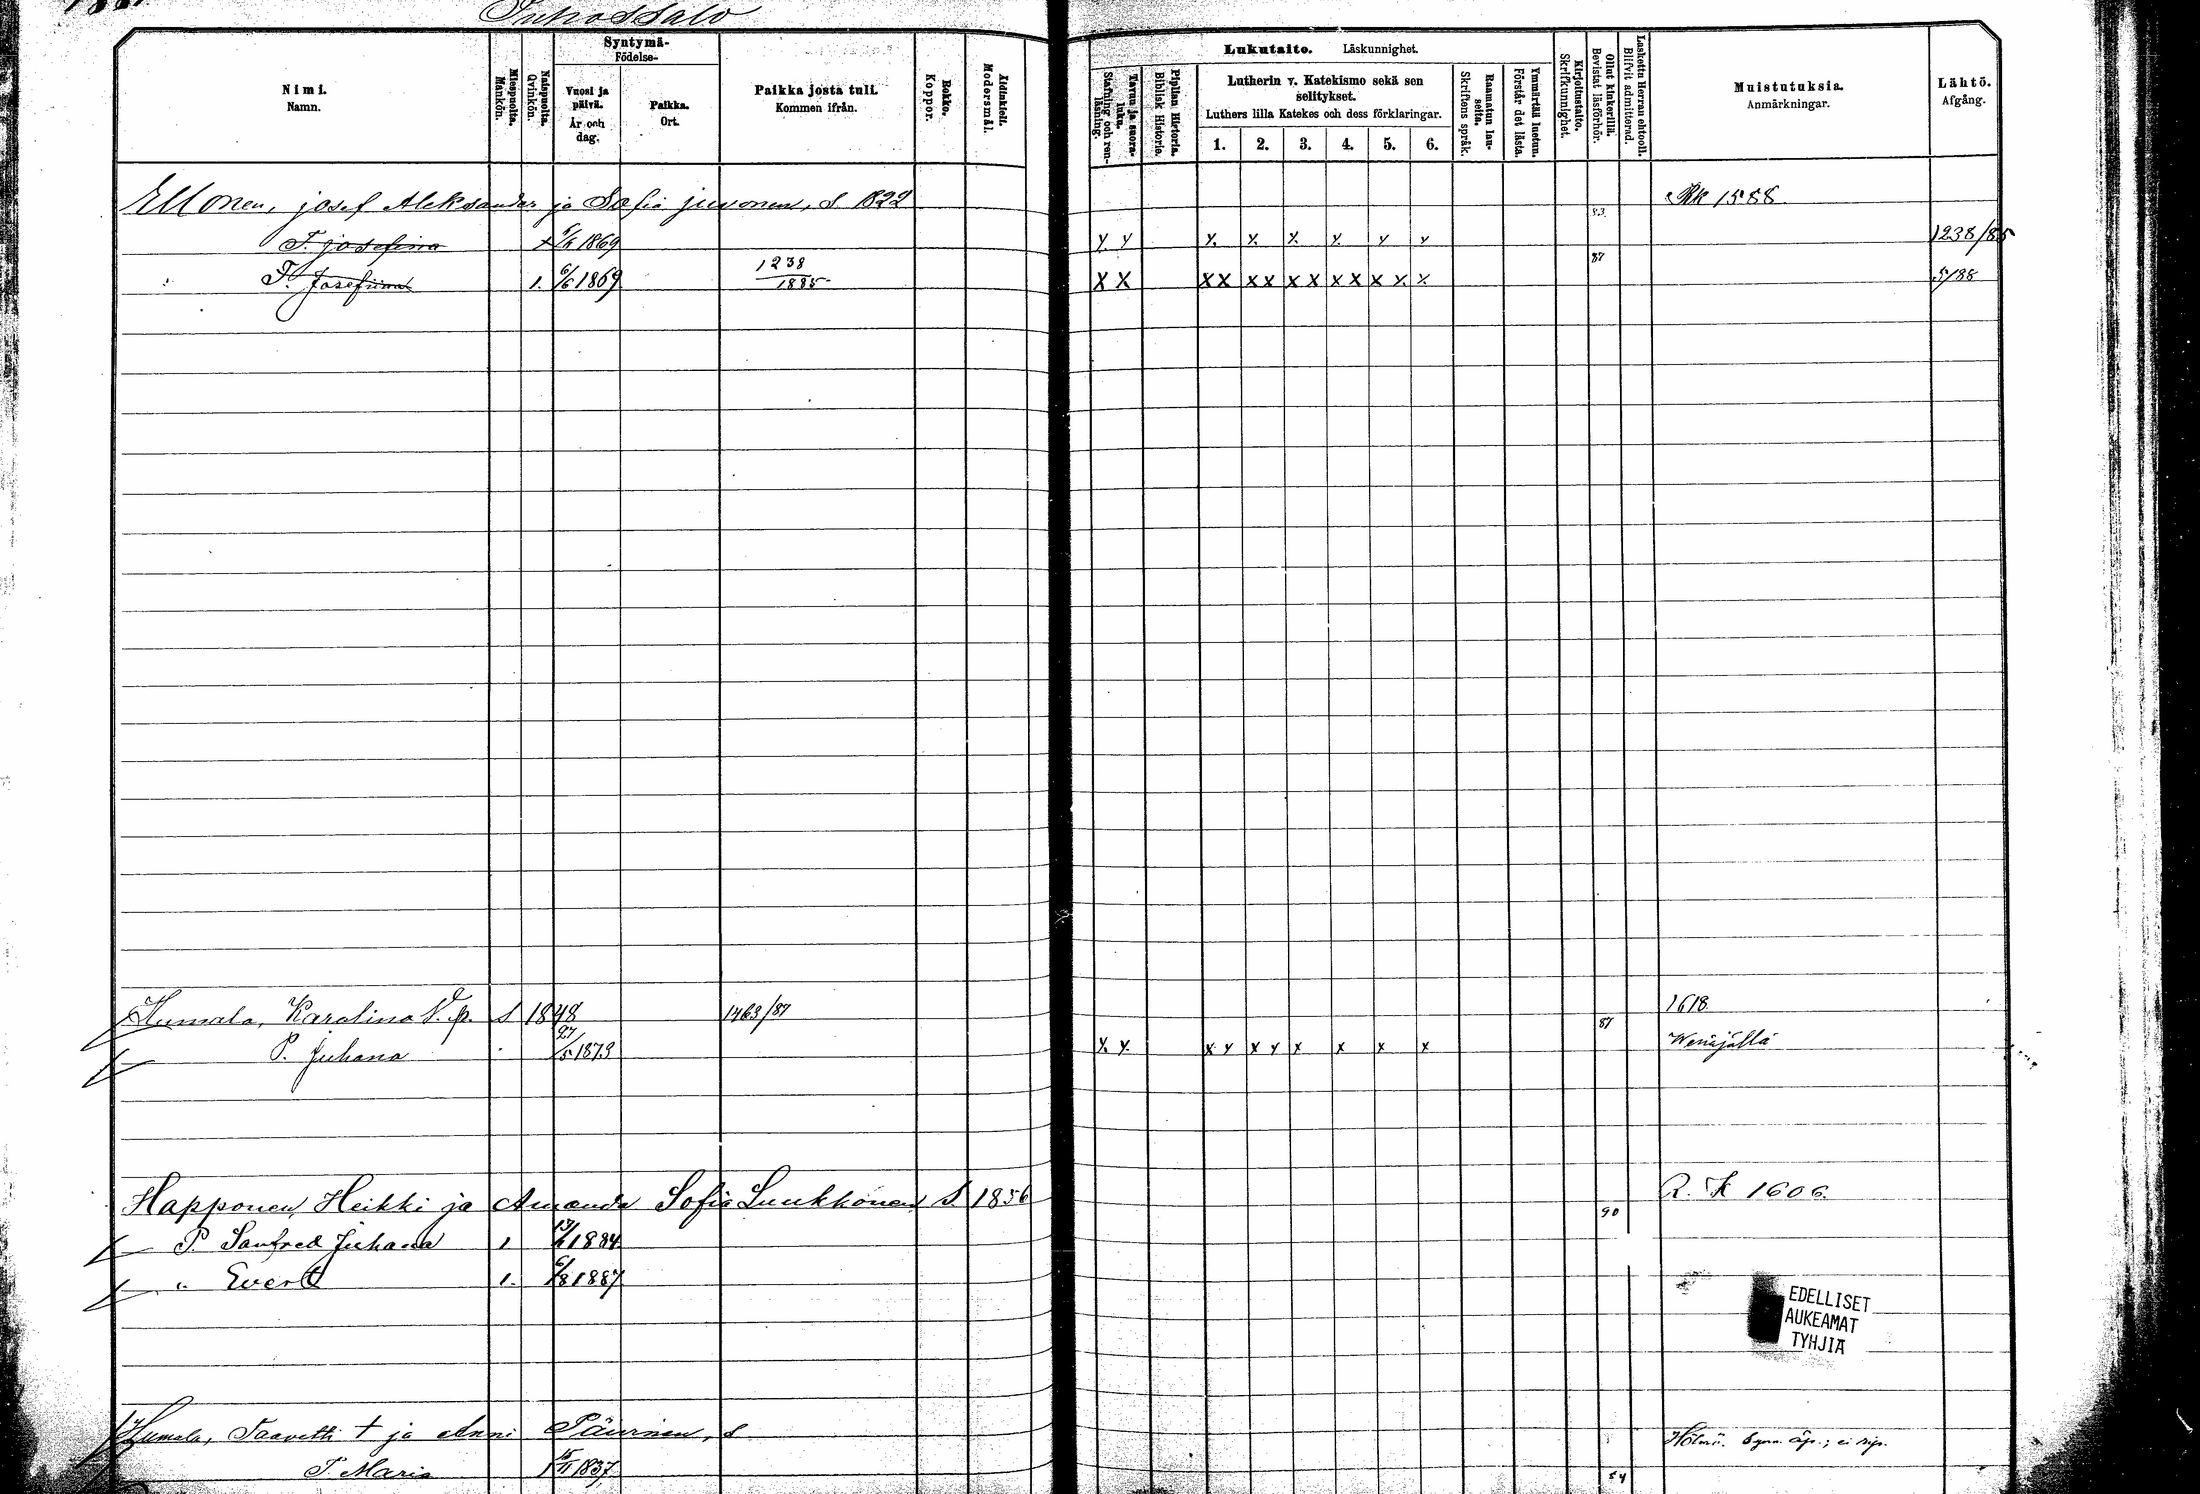 Nimi.
Namn.
Miespuolta.
Mankön.
Naispuolta.
Qvinkön.
Syntymä-
Födelse-
Vuosi ja
päivä.
År och
dag.
Paikka.
Ort.
Paikka josta tuli.
Kommen ifrån.
Rokko.
Koppor.
Äidinkieli.
Modersmål.
Tavuu ja suora-
luku.
Stafning och ren-
läsning.
Piplian Historia.
Biblisk Historie.
Lukutaito. Läskunnighet.
Lutherin v. Katekismo sekä sen
selitykset.
Luthers lilla Katekes och dess förklaringar.
1. 2. 3. 4. 5. 6.
Raamatun lau-
seita.
Skriftens språk.
Ymmärtää luetun.
Förstår det lästa.
Kirjoitustaito.
Skrifkunnighet.
Ollut kinkerillä.
Bevistat läsförhör.
Laskettu Herran ehtooll.
Blifvit admitterad.
Muistutuksia.
Anmärkningar.
Lähtö.
Afgång.
Ellonen, josef Aleksander ja Sofia juvonen, S 1822 Rk 1588
83.
T. josefina x 1869 x x x x x x x x 1238/85
87
T. Josefiina 1. 6/6 1869 1238/1885 X X XX XX XX XX XX X 5/88
Humala, Karolina S 1848 1463/87 1618
87
P. Juhana 27/5 1873 x x x x x x x x x x Wenäjällä
Happonen, Heikki ja Amanda Sofia Luukkonen S. 1856 R. K 1606.
90
P. Sanfred Juhana 1 1884
" Evert 1. 6/8 1887
EDELLISET
AUKEAMAT
TYHJIÄ
Humala, Taavetti † ja Anni Päivinen, S
T. Maria 1 1837